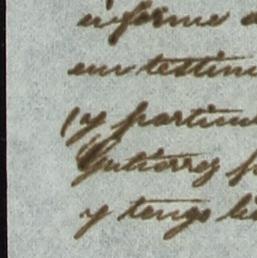 informe
en testim
y particu
Gutierrez
y tengo